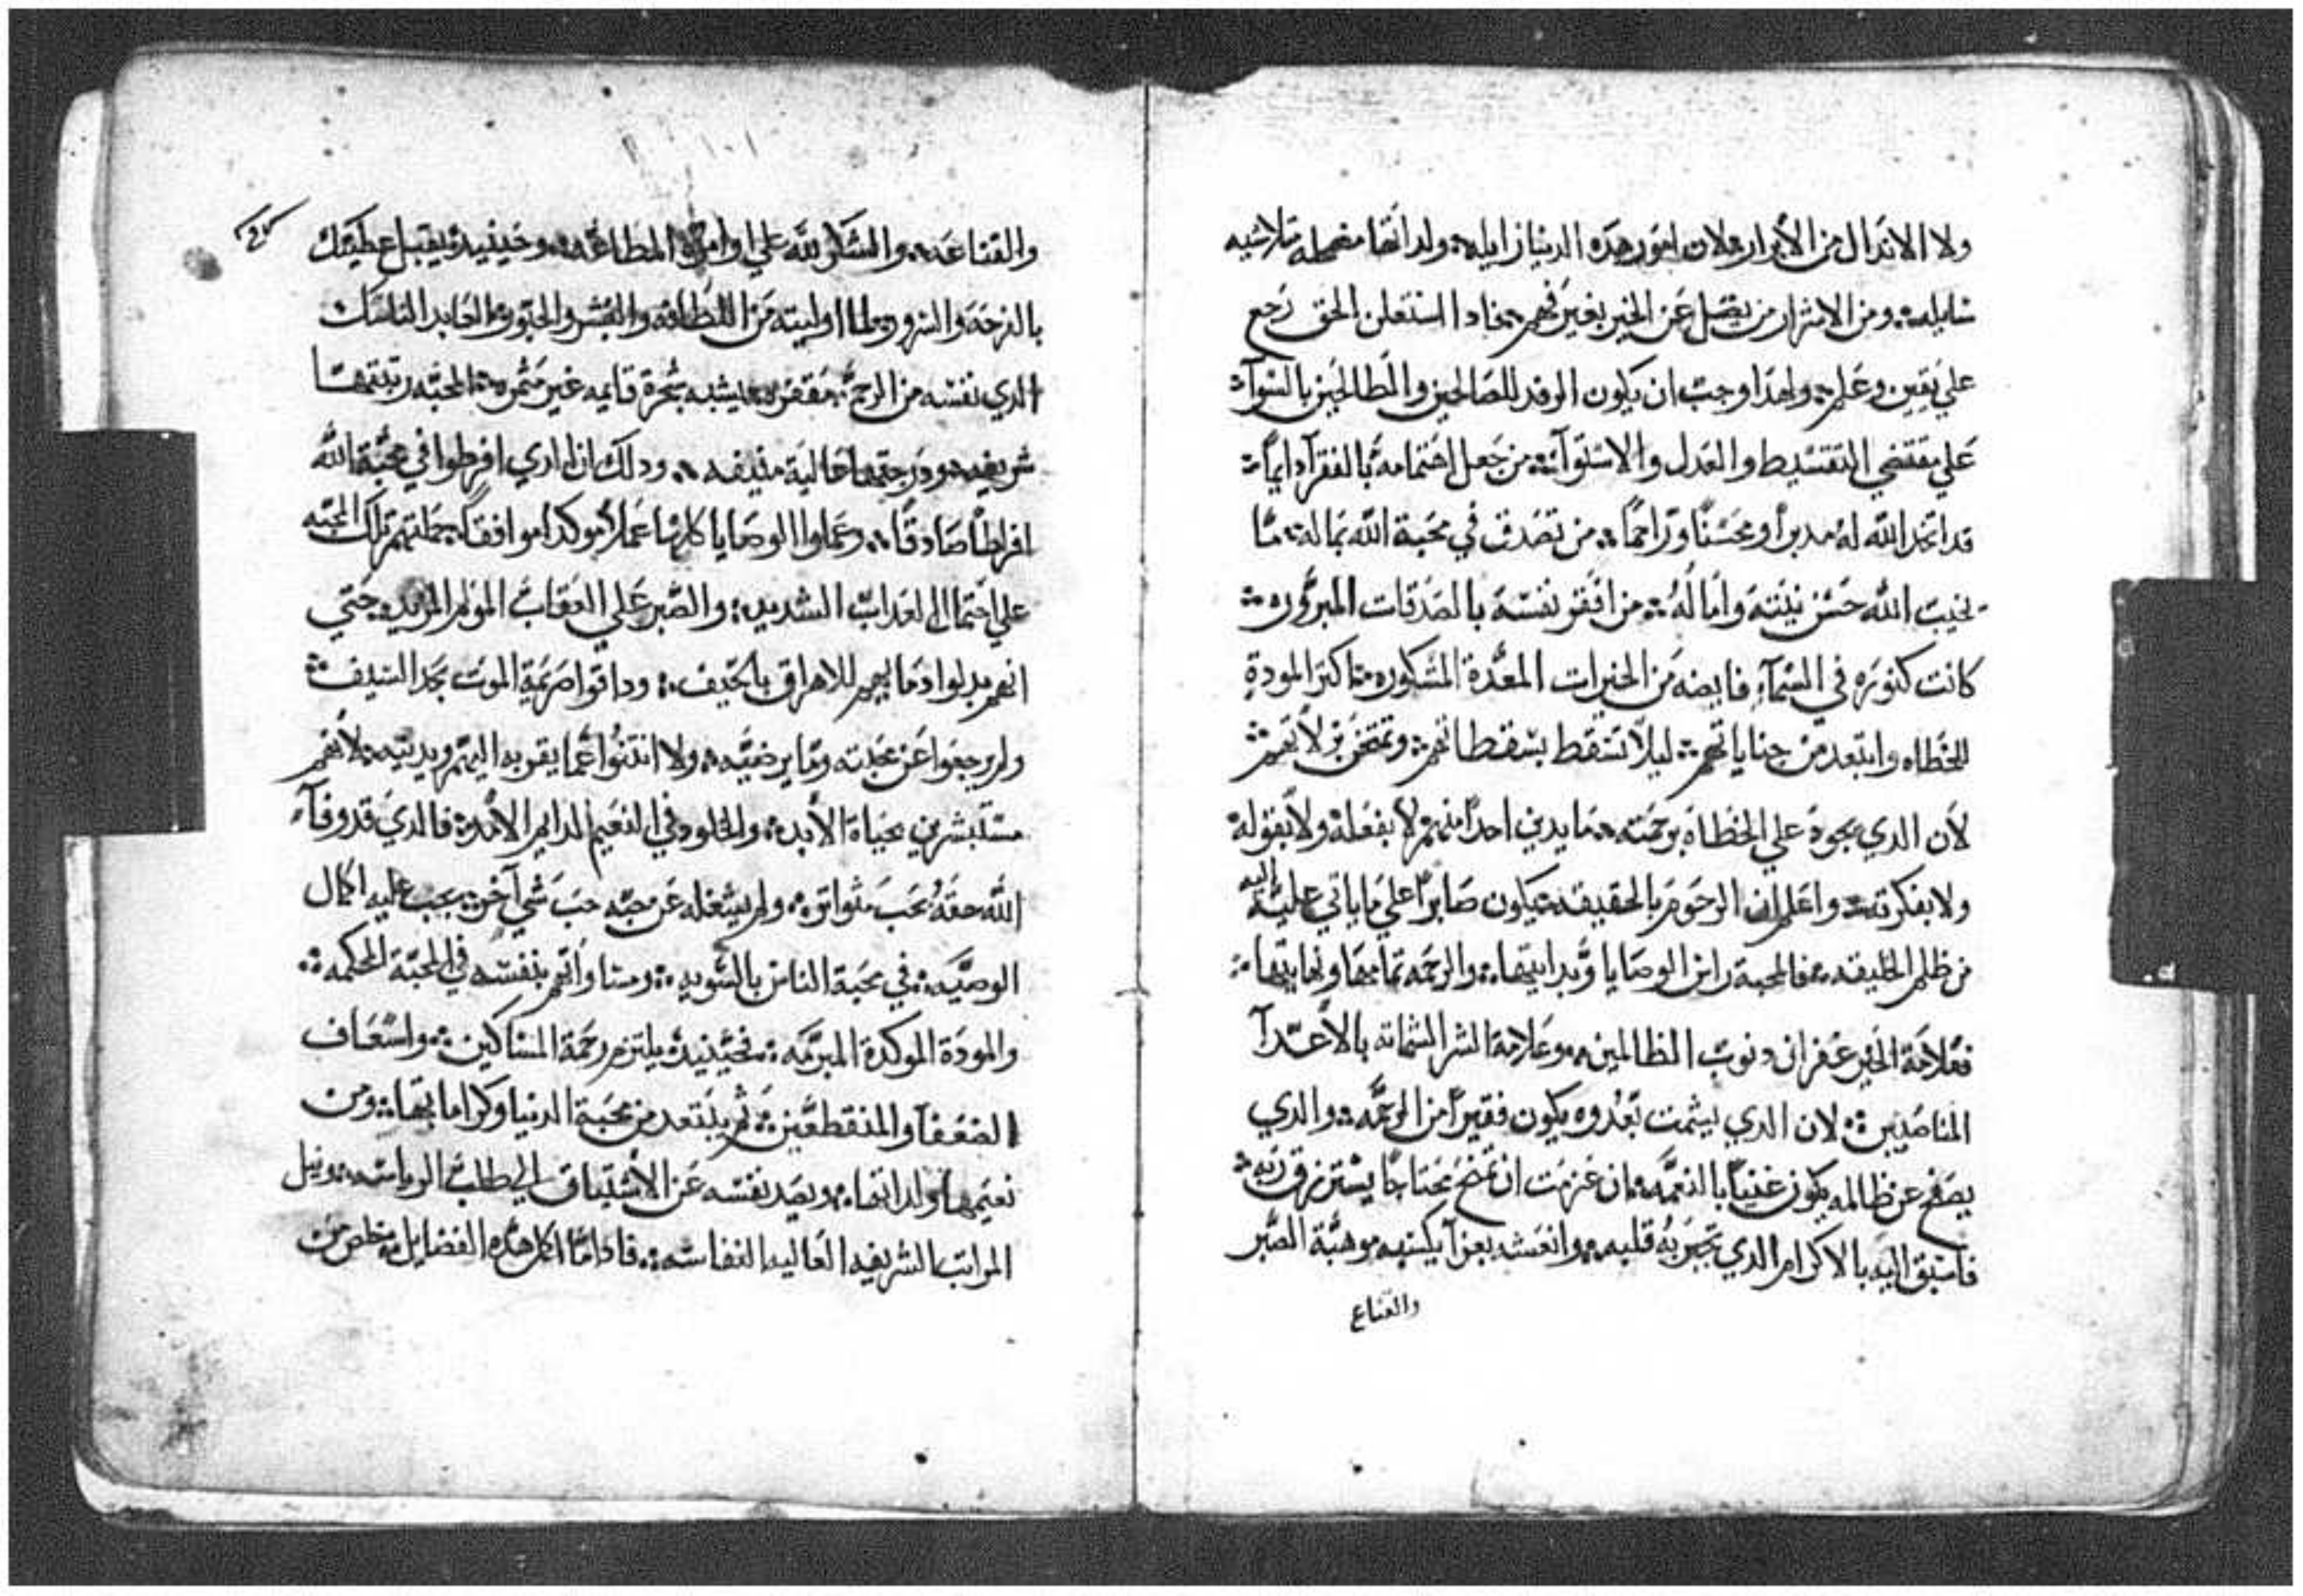 ولا الاندال من الأبرار ولان امور هده الدنيا زايله ولداتها مضمحله متلاشيه
سايله ومن الاشرار من يضل عن الخير بغير فهم فادا استعلن الحق رجع
علي يقين وعلم ولهدا وجب ان يكون الرفد للصالحين والطالحين بالسوآء
علي مقتضي التقسيط والعدل والاستوآء من جعل اهتمامه بالفقرآ دايماً
قد اتخد الله له مدبراً ومحسناً وراحماً من تصدق في محبة الله بماله ما
تخيب الله حسن نيته وآماله من افقر نفسه بالصدقات المبروره
كانت كنوزه في السمآء فايضه من الخيرات المعدة المشكوره اكثر المودة
للخطاه وابتعد من جناياتهم ليلاً تسقط بسقطاتهم وتمتحن بزلاتهم
لان الدي يجود علي الخطاة برحمته ما يدين احداً منهم لا بفعله ولا بقوله
ولا بفكرته واعلم ان الرحوم بالحقيقه يكون صابراً علي ما ياتي عليه اليه
من ظلم الخليقه فالمحبة راس الوصايا وبدايتها والرحمه تمامها ونهايتها
فعلامة الخير غفران دنوب الظالمين وعلامة الشر الشماته بالأعدآ
المناصبين لان الدي يشمت بعدوه يكون فقيراً من الرحمه والدي
يصفح عن ظالمه يكون غنياً بالنعمه ان عزمت ان تمنح محتاجا يسترزق ربه
فاسبق اليه بالاكرام الدي تجبر به قلبه وانعشه بعزآ يكسبه موهبة الصبر
والقناع
والقناعه والشكر لله علي اوامره المطاعه وحينيد يقبل عطيتك
بالفرحه والسرور ولما اوليته من اللطافه والبشر والحبور والعابد الناسك
الدي نفسه من الرحمه مقفره يشبه شجرة قايمه غير مثمره المحبه رتبتها
شريفه ودرجتها عالية منيفه ودلك ان الدي افرطوا في محبة الله
افراطاً صادقاً وعملوا الوصايا كلها عملاً موكدا موافقاً حملتهم تلك المحبه
علي احتمال العداب الشديد والصبر علي العقاب المولم المزيد حتي
انهم بدلوا دمايهم للاهراق بالحيف وداقوا مرمية الموت بحد السيف
ولم يرجعوا عن محبته وما يرضيه ولا انتنوا عما يقربه اليهم ويدنيه لأنهم
مستبشرين بحياة الأبد والخلود في النعيم الدايم الأمد فالدي قد وفآء
الله حقه بحب متواتره ولم يشغله عن محبه حب شي آخر يجب عليه اكمال
الوصيه في محبة الناس بالسويه ومساواتهم بنفسه في المحبة المحكمه
والمودة الموكدة المبرمه فحينيد يلتزم رحمة المساكين واسعاف
الضعفآ والمنقطعين ثم يبتعد من محبة الدنيا وكراماتها ومن
نعيمها ولداتها ويصد نفسه عن الأشتياق الي طلب الرياسه ونيل
المراتب الشريفه العاليه النفاسه فادا ما اكمل هده الفضايل خلص من